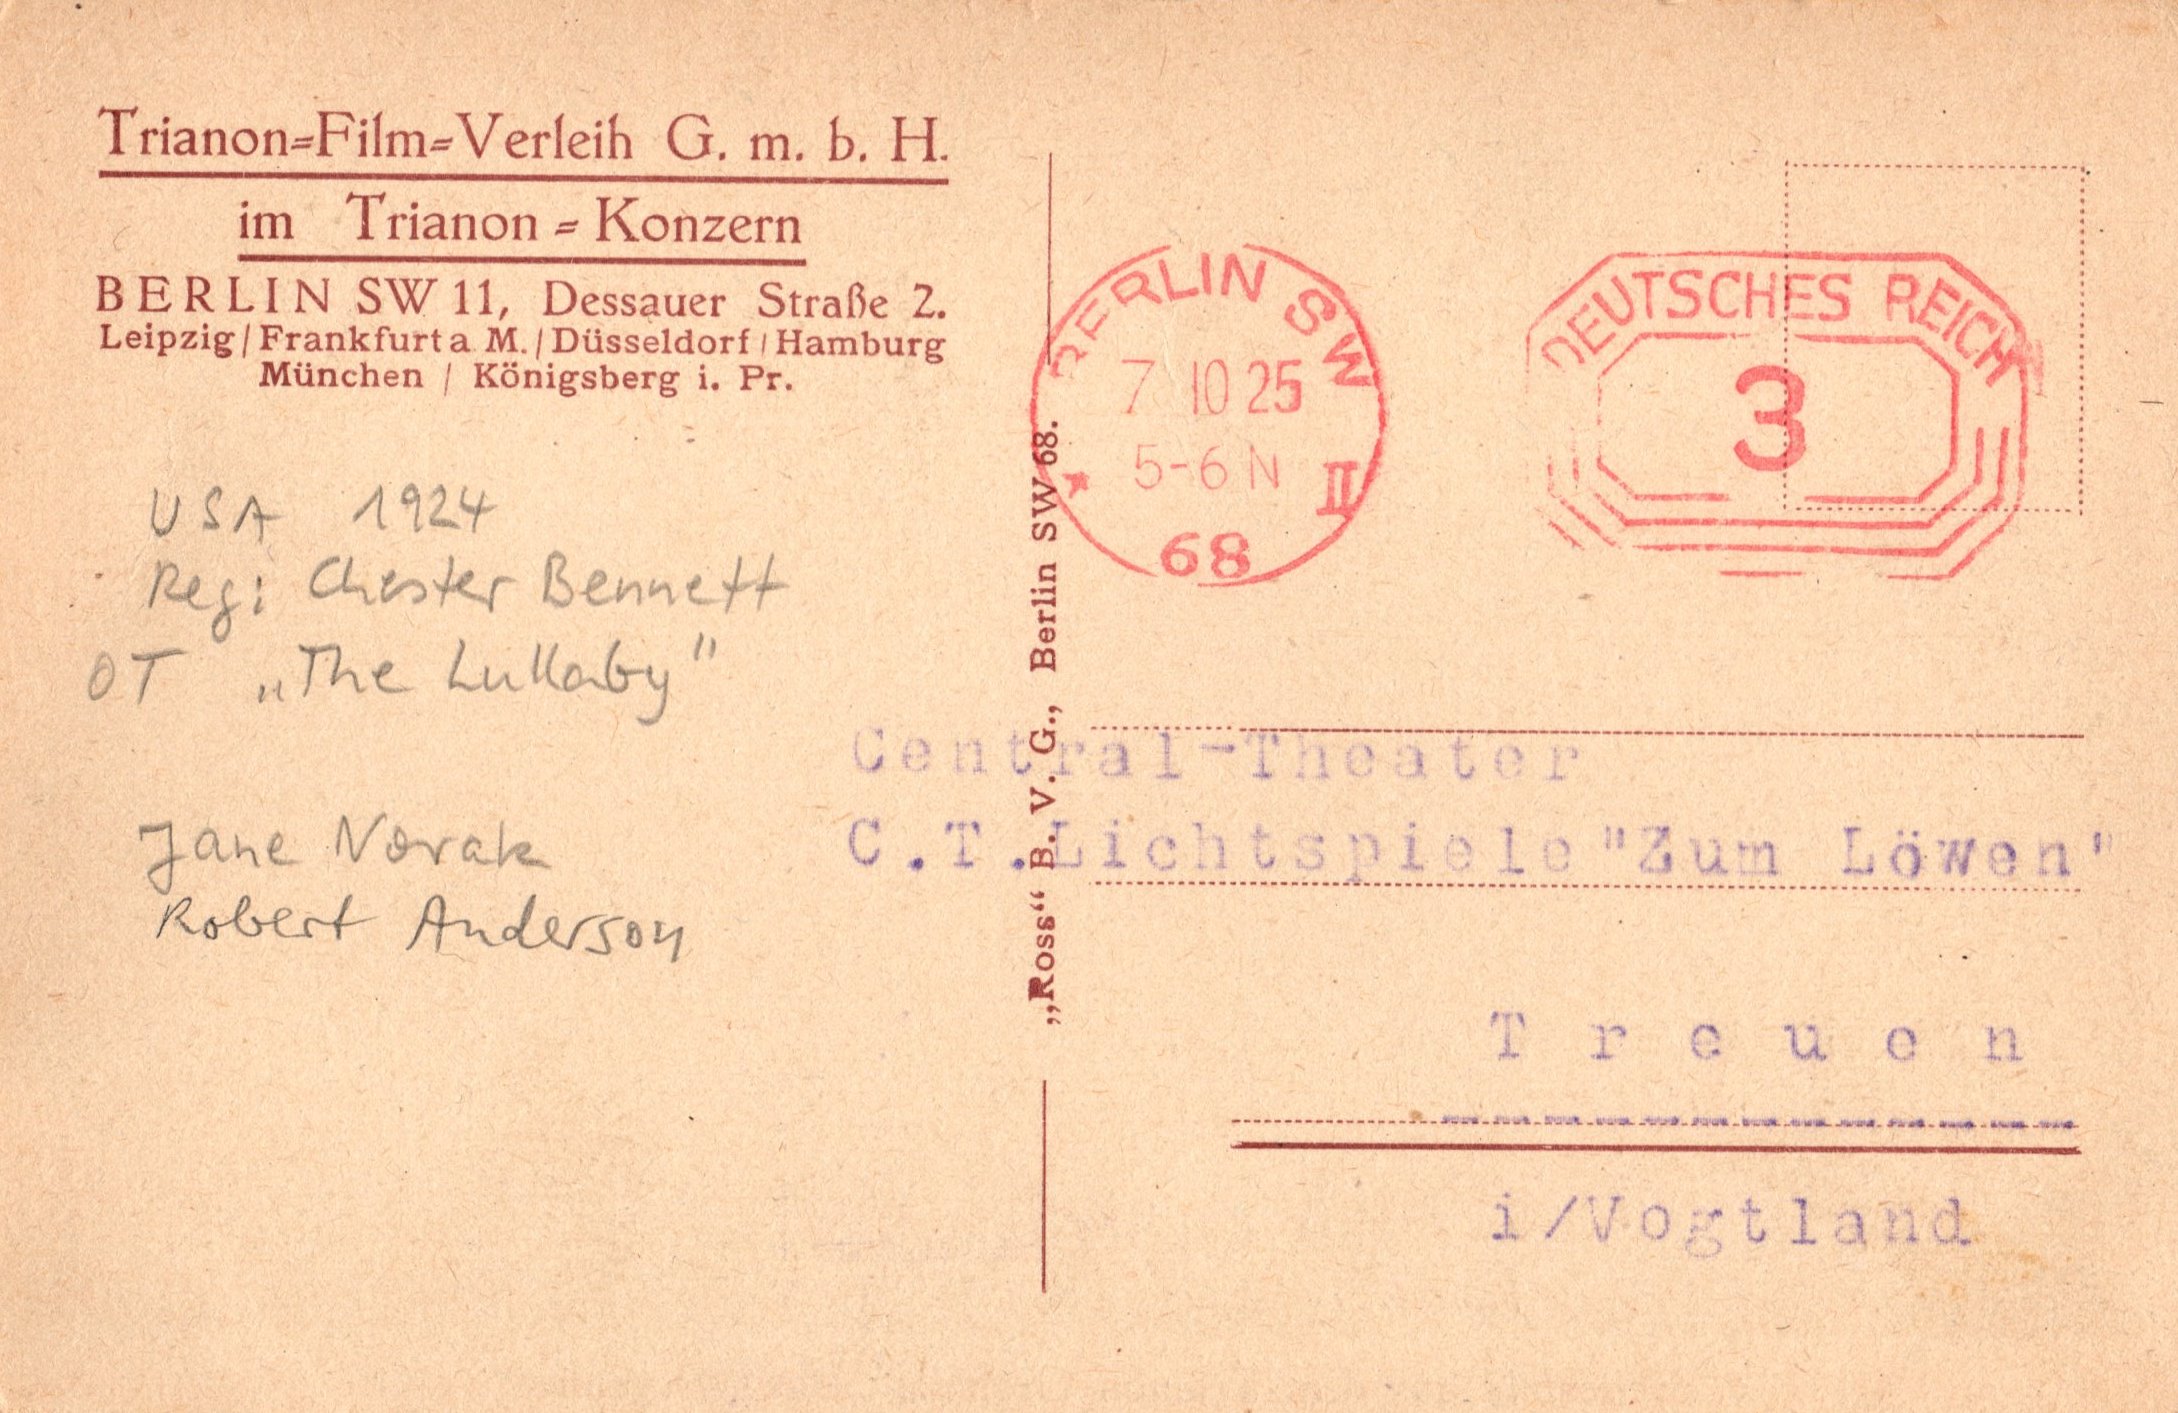 Trianon=Film=Verleih G. m. b. H.
im Trianon = Konzern
BERLIN SW 11, Dessauer Straße 2.
Leipzig / Frankfurt a M. / Düsseldorf / Hamburg
München / Königsberg i. Pr.
USA 1924
Reg: Chester Bennett
OT „The Lullaby"
Jane Novak
Robert Anderson
„Ross“ B. V. G., Berlin SW 68.
BERLIN SW
7 10 25
5-6 N II
68
DEUTSCHES REICH
3
Central-Theater
C.T.Lichtspiele "Zum Löwen"
Treuen
i/Vogtland